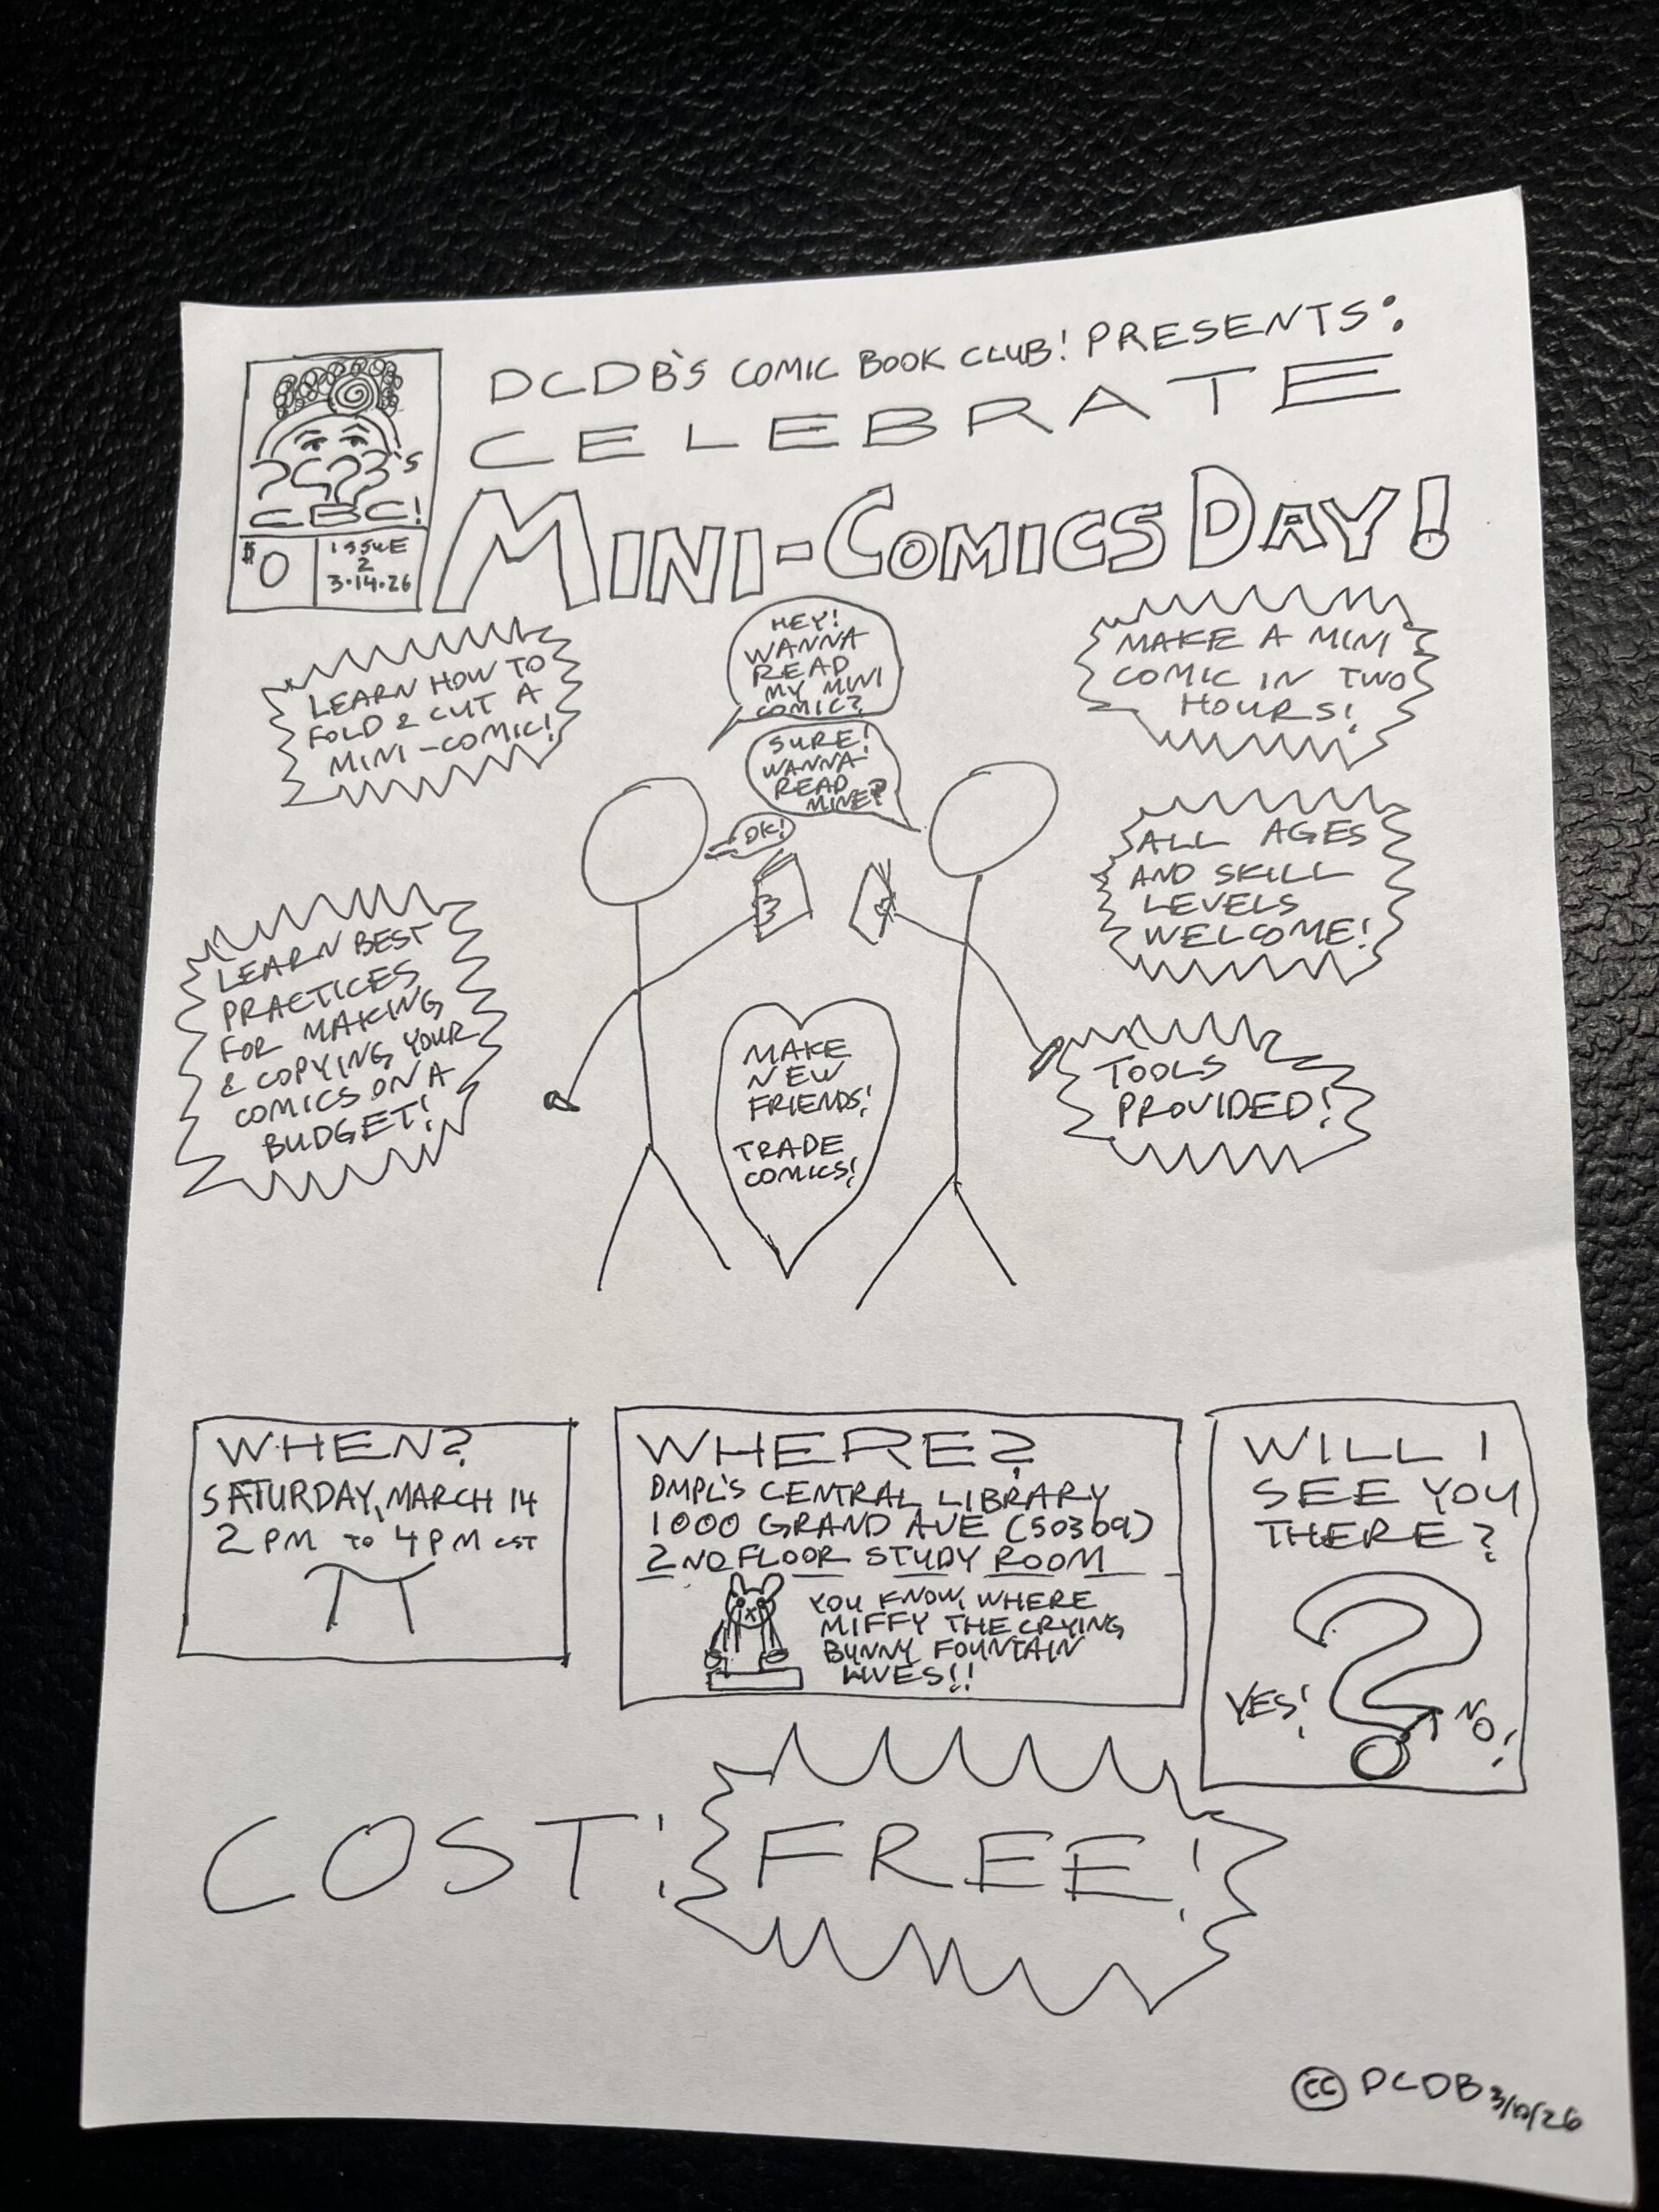 DCDB'S COMIC BOOK CLUB! PRESENTS:
CELEBRATE
MINI-COMICS DAY!
CBC!
$0
ISSUE
2
3·14·26
LEARN HOW TO
FOLD & CUT A
MINI-COMIC!
HEY!
WANNA
READ
MY MINI
COMIC?
SURE!
WANNA
READ
MINE?
OK!
MAKE A MINI
COMIC IN TWO
HOURS!
ALL AGES
AND SKILL
LEVELS
WELCOME!
LEARN BEST
PRACTICES
FOR MAKING
& COPYING YOUR
COMICS ON A
BUDGET!
MAKE
NEW
FRIENDS!
TRADE
COMICS!
TOOLS
PROVIDED!
WHEN?
SATURDAY, MARCH 14
2 PM TO 4 PM CST
π
WHERE?
DMPL'S CENTRAL LIBRARY
1000 GRAND AVE (50309)
2ND FLOOR STUDY ROOM
YOU KNOW, WHERE
MIFFY THE CRYING
BUNNY FOUNTAIN
LIVES!!
WILL I
SEE YOU
THERE?
?
YES!
NO!
COST: FREE!
CC DCDB 3/10/26